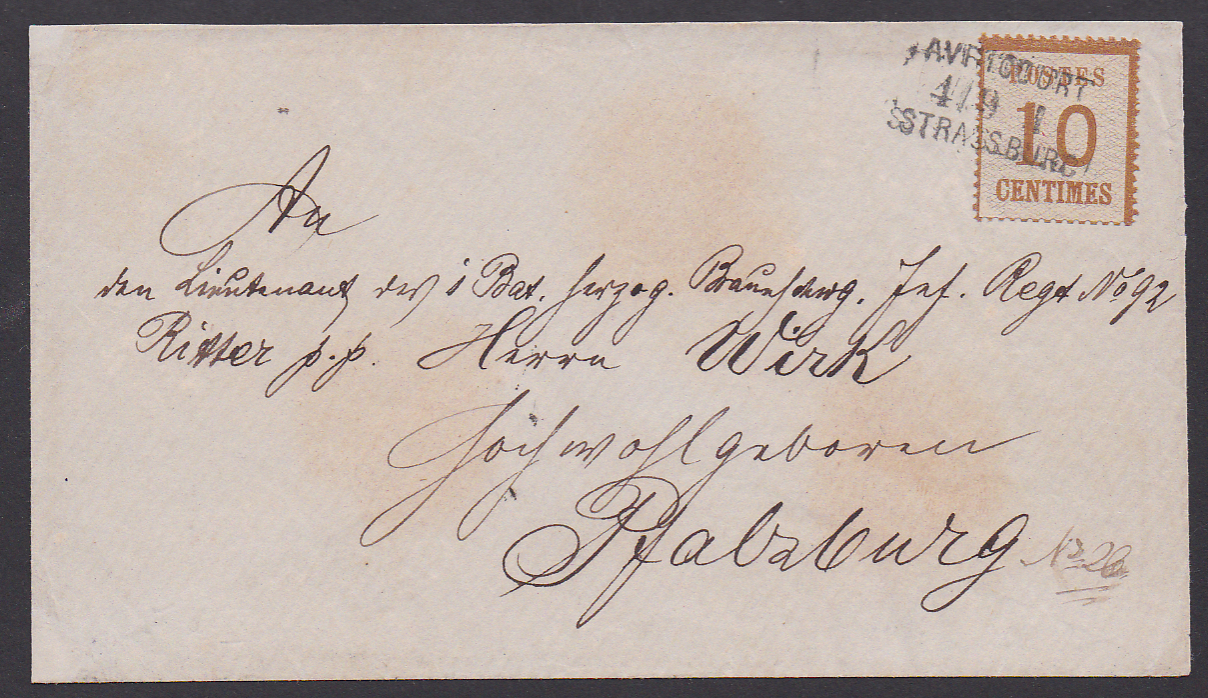 AVRICOURT
4/9 I
STRASSBURG
POSTES
10
CENTIMES
An
den Lieutenant des 1 Bat. Herzog. Braunschwg. Inf. Regt No 92
Ritter p.p. Herrn Wirk
Hochwohlgeboren
Pfalzburg